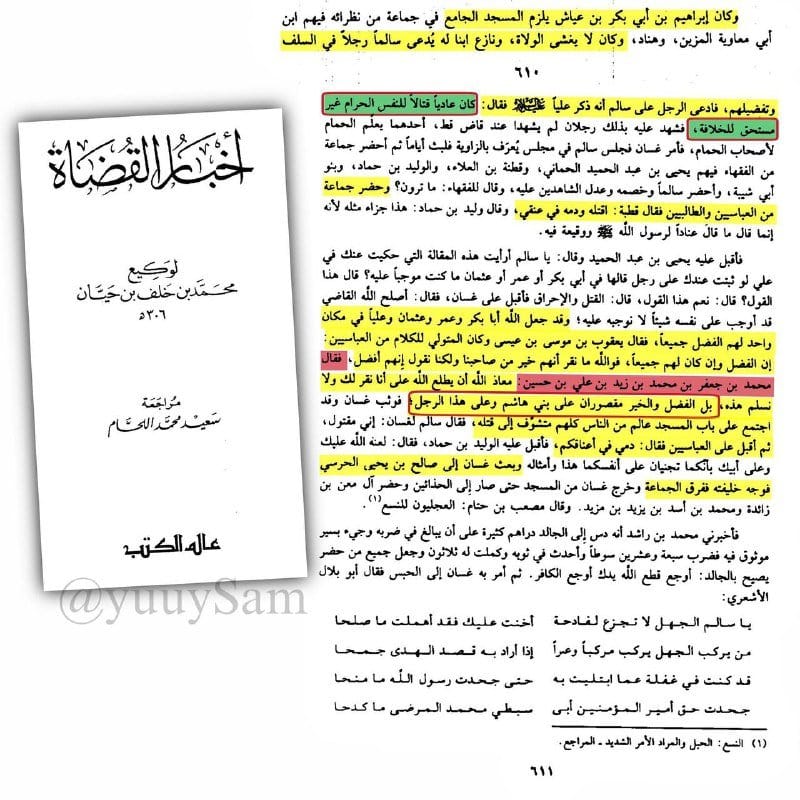 وكان إبراهيم بن أبي بكر بن عياش يلزم المسجد الجامع في جماعة من نظرائه فيهم ابن
أبي معاوية المزين، وهناد، وكان لا يغشى الولاة، ونازع ابنا له يُدعى سالماً رجلاً في السلف
٦١٠
وتفضيلهم، فادعى الرجل على سالم أنه ذكر علياً عليه السلام فقال: كان عادياً قتالاً للنفس الحرام غير
مستحق للخلافة، فشهد عليه بذلك رجلان لم يشهدا عند قاض قط، أحدهما يعلّم الحمام
لأصحاب الحمام، فأمر غسان فجلس سالم في مجلس يُعرف بالزاوية فلبث أياماً ثم أحضر جماعة
من الفقهاء فيهم يحيى بن عبد الحميد الحماني، وقطنة بن العلاء، والوليد بن حماد، وبنو
أبي شيبة، وأحضر سالماً وخصمه وعدل الشاهدين عليه، وقال للفقهاء: ما ترون؟ وحضر جماعة
من العباسيين والطالبيين فقال قطبة: اقتله ودمه في عنقي، وقال وليد بن حماد: هذا جزاء مثله لأنه
إنما قال ما قال عناداً لرسول اللَّه ﷺ ووقيعة فيه.
فأقبل عليه يحيى بن عبد الحميد وقال: يا سالم أرأيت هذه المقالة التي حكيت عنك في
علي لو ثبتت عندك على رجل قالها في أبي بكر أو عمر أو عثمان ما كنت موجباً عليه؟ قال هذا
القول؟ قال: نعم هذا القول، قال: القتل والإحراق فأقبل على غسان، فقال: أصلح اللَّه القاضي
قد أوجب على نفسه شيئاً لا نوجبه عليه؛ وقد جعل اللَّه أبا بكر وعمر وعثمان وعلياً في مكان
واحد لهم الفضل جميعاً، فقال يعقوب بن موسى بن عيسى وكان المتولي للكلام من العباسيين:
إن الفضل وإن كان لهم جميعاً، فواللَّه ما نقر أنهم خير من صاحبنا ولكنا نقول إنهم أفضل، فقال
محمد بن جعفر بن محمد بن زيد بن علي بن حسين: معاذ اللَّه أن يطلع اللَّه على أنا نقر لك ولا
نسلم هذه، بل الفضل والخير مقصوران على بني هاشم وعلى هذا الرجل؛ فوثب غسان وقد
اجتمع على باب المسجد عالم من الناس كلهم متشوِّف إلى قتله، فقال سالم لغسان: إني مقتول،
ثم أقبل على العباسيين فقال: دمي في أعناقكم، فأقبل عليه الوليد بن حماد، فقال: لعنة اللَّه عليك
وعلى أبيك بأنّكما تجنيان على أنفسكما هذا وأمثاله وبعث غسان إلى صالح بن يحيى الحرسي
فوجه خليفته ففرق الجماعة وخرج غسان من المسجد حتى صار إلى الحذائين وحضر آل معن بن
زائدة ومحمد بن أسد بن يزيد بن مزيد. وقال مصعب بن حثام: العجليون للنسع(١).
فأخبرني محمد بن راشد أنه دس إلى الجالد دراهم كثيرة على أن يبالغ في ضربه وجيء بسير
موثوق فيه فضرب سبعة وعشرين سوطاً وأحدث في ثوبه وكملت له ثلاثون وجعل جميع من حضر
يصيح بالجالد: أوجع قطع اللَّه يدك أوجع الكافر. ثم أمر به غسان إلى الحبس فقال أبو بلال
الأشعري:
يا سالم الجهل لا تجزع لفادحة أخنت عليك فقد أهملت ما صلحا
من يركب الجهل يركب مركباً وعراً إذا أراد به قصد الهدى جمحا
قد كنت في غفلة عما ابتليت به حتى جحدت رسول اللَّه ما منحا
جحدت حق أمير المؤمنين أبى سبطي محمد المرضي ما كدحا
(١) النسع: الحبل والمراد الأمر الشديد ـ المراجع.
٦١١
أخبار القضاة
لوكيع
محمد بن خلف بن حيان
٣٠٦ هـ
مراجعة
سعيد محمد اللحام
عالم الكتب
@yuuySam